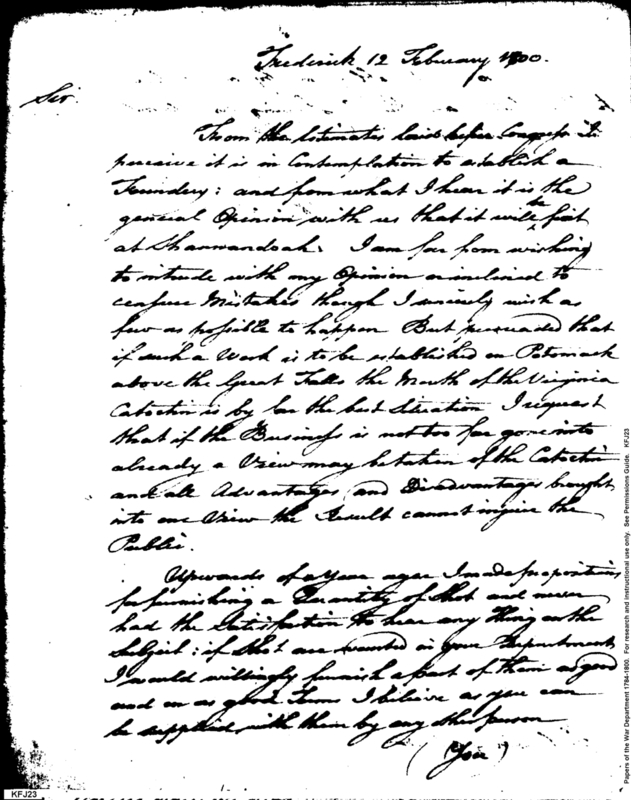 Frederick 12 February 1800.
Sir
From the Estimates laid before Congress I
perceive it is in Contemplation to establish a
Foundery: and from what I hear it is the
general Opinion with us that it will be fixt
at Shannandoah. I am far from wishing
to intrude with my Opinion or inclined to
censure Mistakes though I sincerely wish as
few as possible to happen But persuaded that
if such a Work is to be established on Potomack
above the Great Falls the Mouth of the Virginia
Catoctin is by far the best Situation I request
that if the Business is not too far gone into
already a View may be taken of the Catoctin
and all Advantages and Disadvantages brought
into one View the Result cannot injure the
Public.
Upwards of a Year agoe I made propositions
for furnishing a Quantity of Shot and never
had the Satisfaction to hear any thing on the
Subject: if Shot are wanted in your Department
I would willingly furnish a part of them as good
and on as good Terms I believe as you can
be supplied with them by any other person
(You)
KFJ23
Papers of the War Department 1784-1800. For research and instructional use only. See Permissions Guide. KFJ23